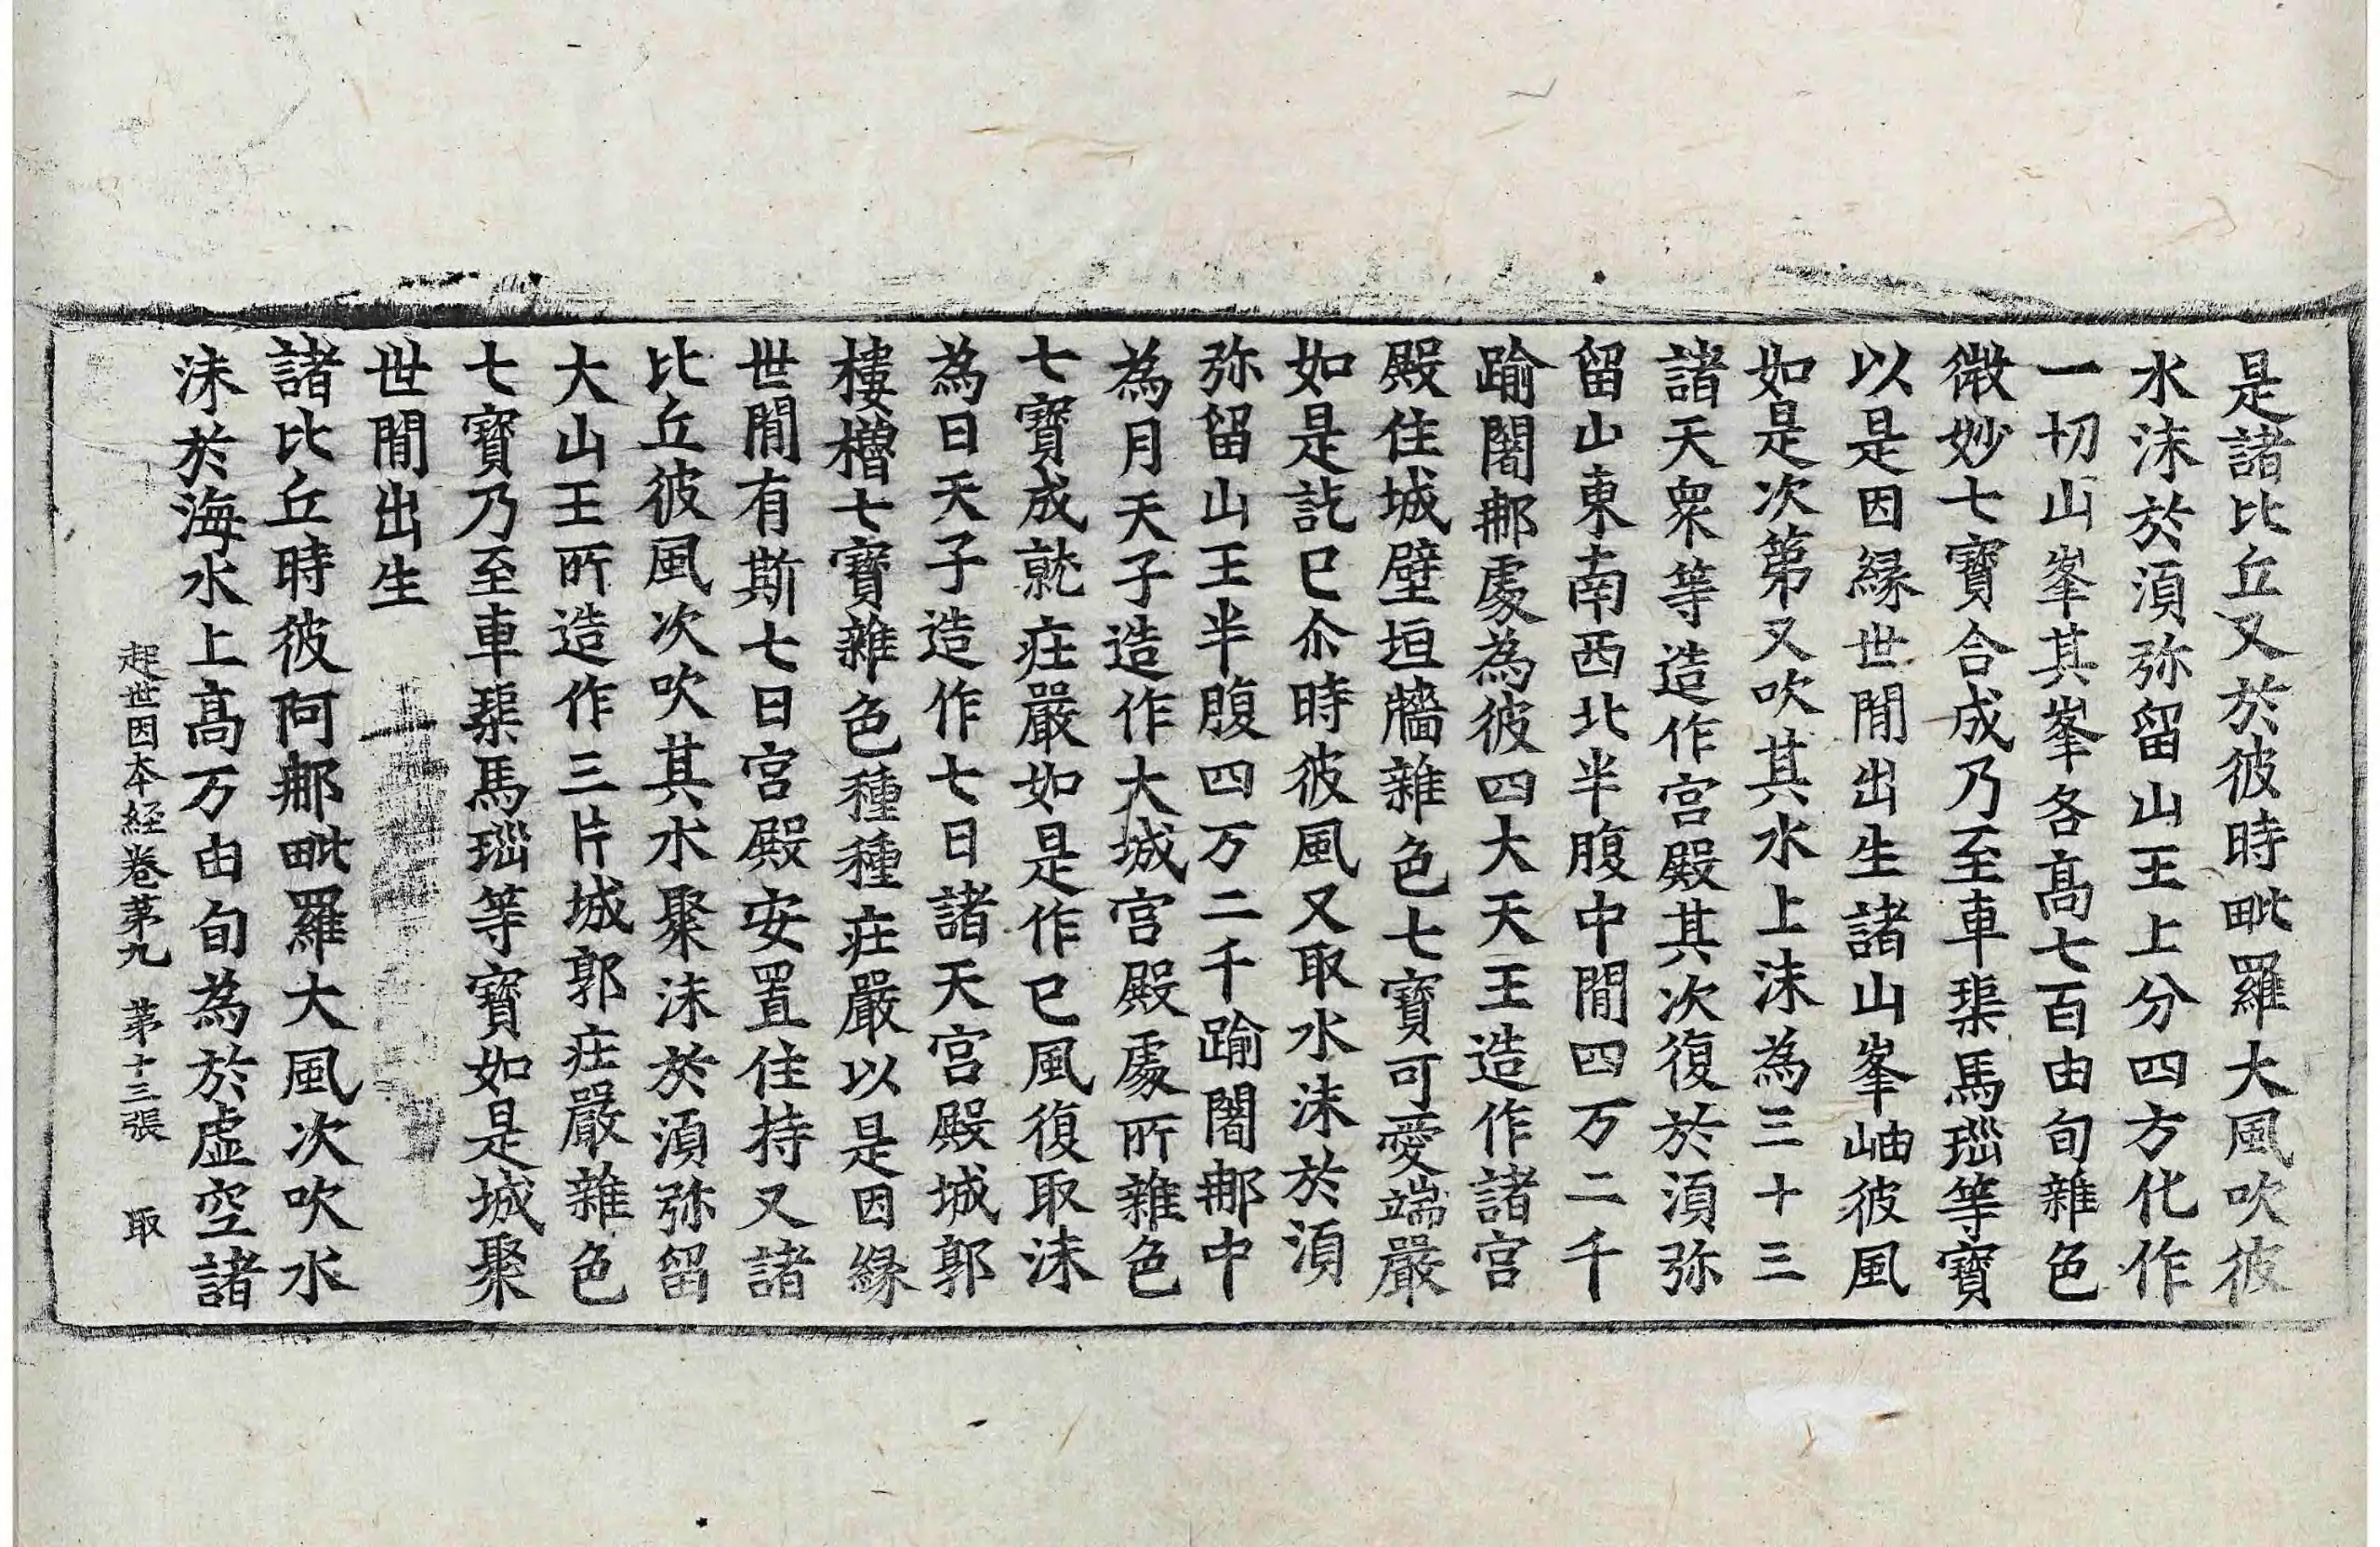 是諸比丘又於彼時毗羅大風吹彼
水沫於須弥留山王上分四方化作
一切山峯其峯各高七百由旬雜色
微妙七寶合成乃至車璖馬瑙等寶
以是因緣世間出生諸山峯岫彼風
如是次第又吹其水上沫為三十三
諸天眾等造作宮殿其次復於須弥
留山東南西北半腹中間四万二千
踰闍那處為彼四大天王造作諸宮
殿住城壁垣牆雜色七寶可愛端嚴
如是訖已尒時彼風又取水沫於須
弥留山王半腹四万二千踰闍那中
為月天子造作大城宮殿處所雜色
七寶成就庄嚴如是作已風復取沫
為日天子造作七日諸天宮殿城郭
樓櫓七寶雜色種種庄嚴以是因緣
世間有斯七日宮殿安置住持又諸
比丘彼風次吹其水聚沫於須弥留
大山王所造作三片城郭庄嚴雜色
七寶乃至車璖馬瑙等寶如是城聚
世間出生
諸比丘時彼阿那毗羅大風次吹水
沫於海水上高万由旬為於虛空諸
起世因本經卷第九 第十三張 取